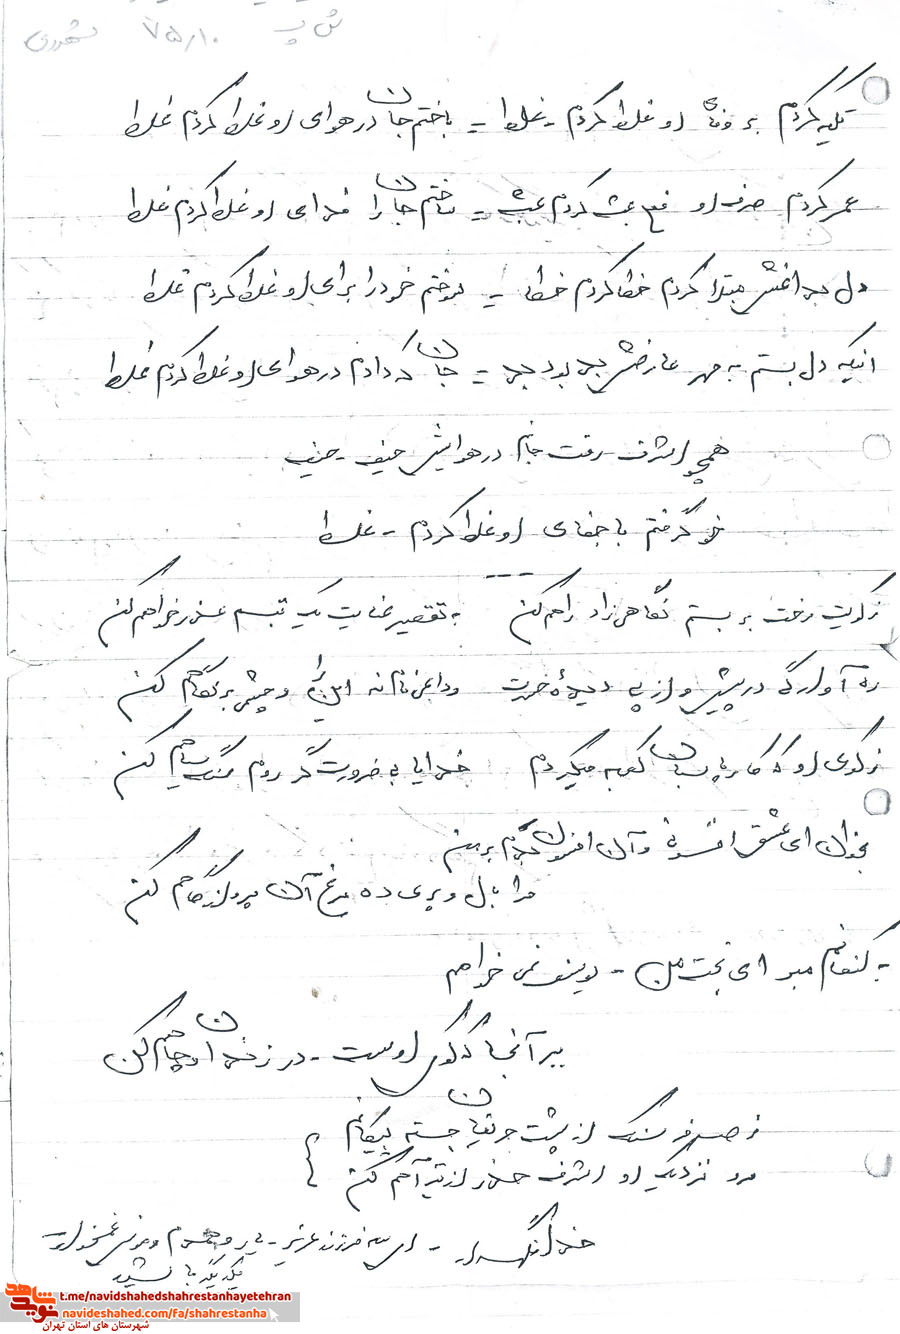 ش پ ۷۵/۱۰
تکیه کردم بر وفای او غلط کردم - غلط - باختم جان در هوای او غلط کردم غلط
عمر کردم صرف او فعلی عبث کردم عبث - ساختم جان را فدای او غلط کردم غلط
دل بداغش مبتلا کردم خطا کردم خطا - سوختم خود را برای او غلط کردم غلط
اینکه دل بستم به مهر عارضش بد بود بد - جان که دادم در هوای او غلط کردم غلط
همچو اشرف رفت جانم در هوایش حیف - حیف
خو گرفتم با جفای او غلط کردم - غلط
ز کویت رخت بر بستم نگاهی زاد راهم کن به تقصیر عنایت یک تبسم عذر خواهم کن
ره آوارگی در پیش و از پی دیده حسرت وداعی نامه این را و چشمی بر نگاهم کن
ز کوی او که کار پاسبان کعبه میکردم خدایا بی ضرورت گر روم سنگ سیاهم کن
بخوان ای عشق افسونی و آن افسون بدم بر من
مرا بال و پری ده مرغ آن پرواز گاهم کن
به کنعانم مبر ای بخت من - یوسف نمی خواهم
ببر آنجا که کوی اوست - در زندان و چاهم کن
ز صد فرسنگ از پشت حریفان جسته پیکانم
مرو نزدیک او اشرف حذر از تیر آهم کن
خدا نگهدار - فرزند عزیز - یار و همدم و مونس غمخوار
یکدیگر باشید
t.me/navidshahedshahrestanhayetehran
navideshahed.com/fa/shahrestanha
نوید شاهد
شهرستان های استان تهران